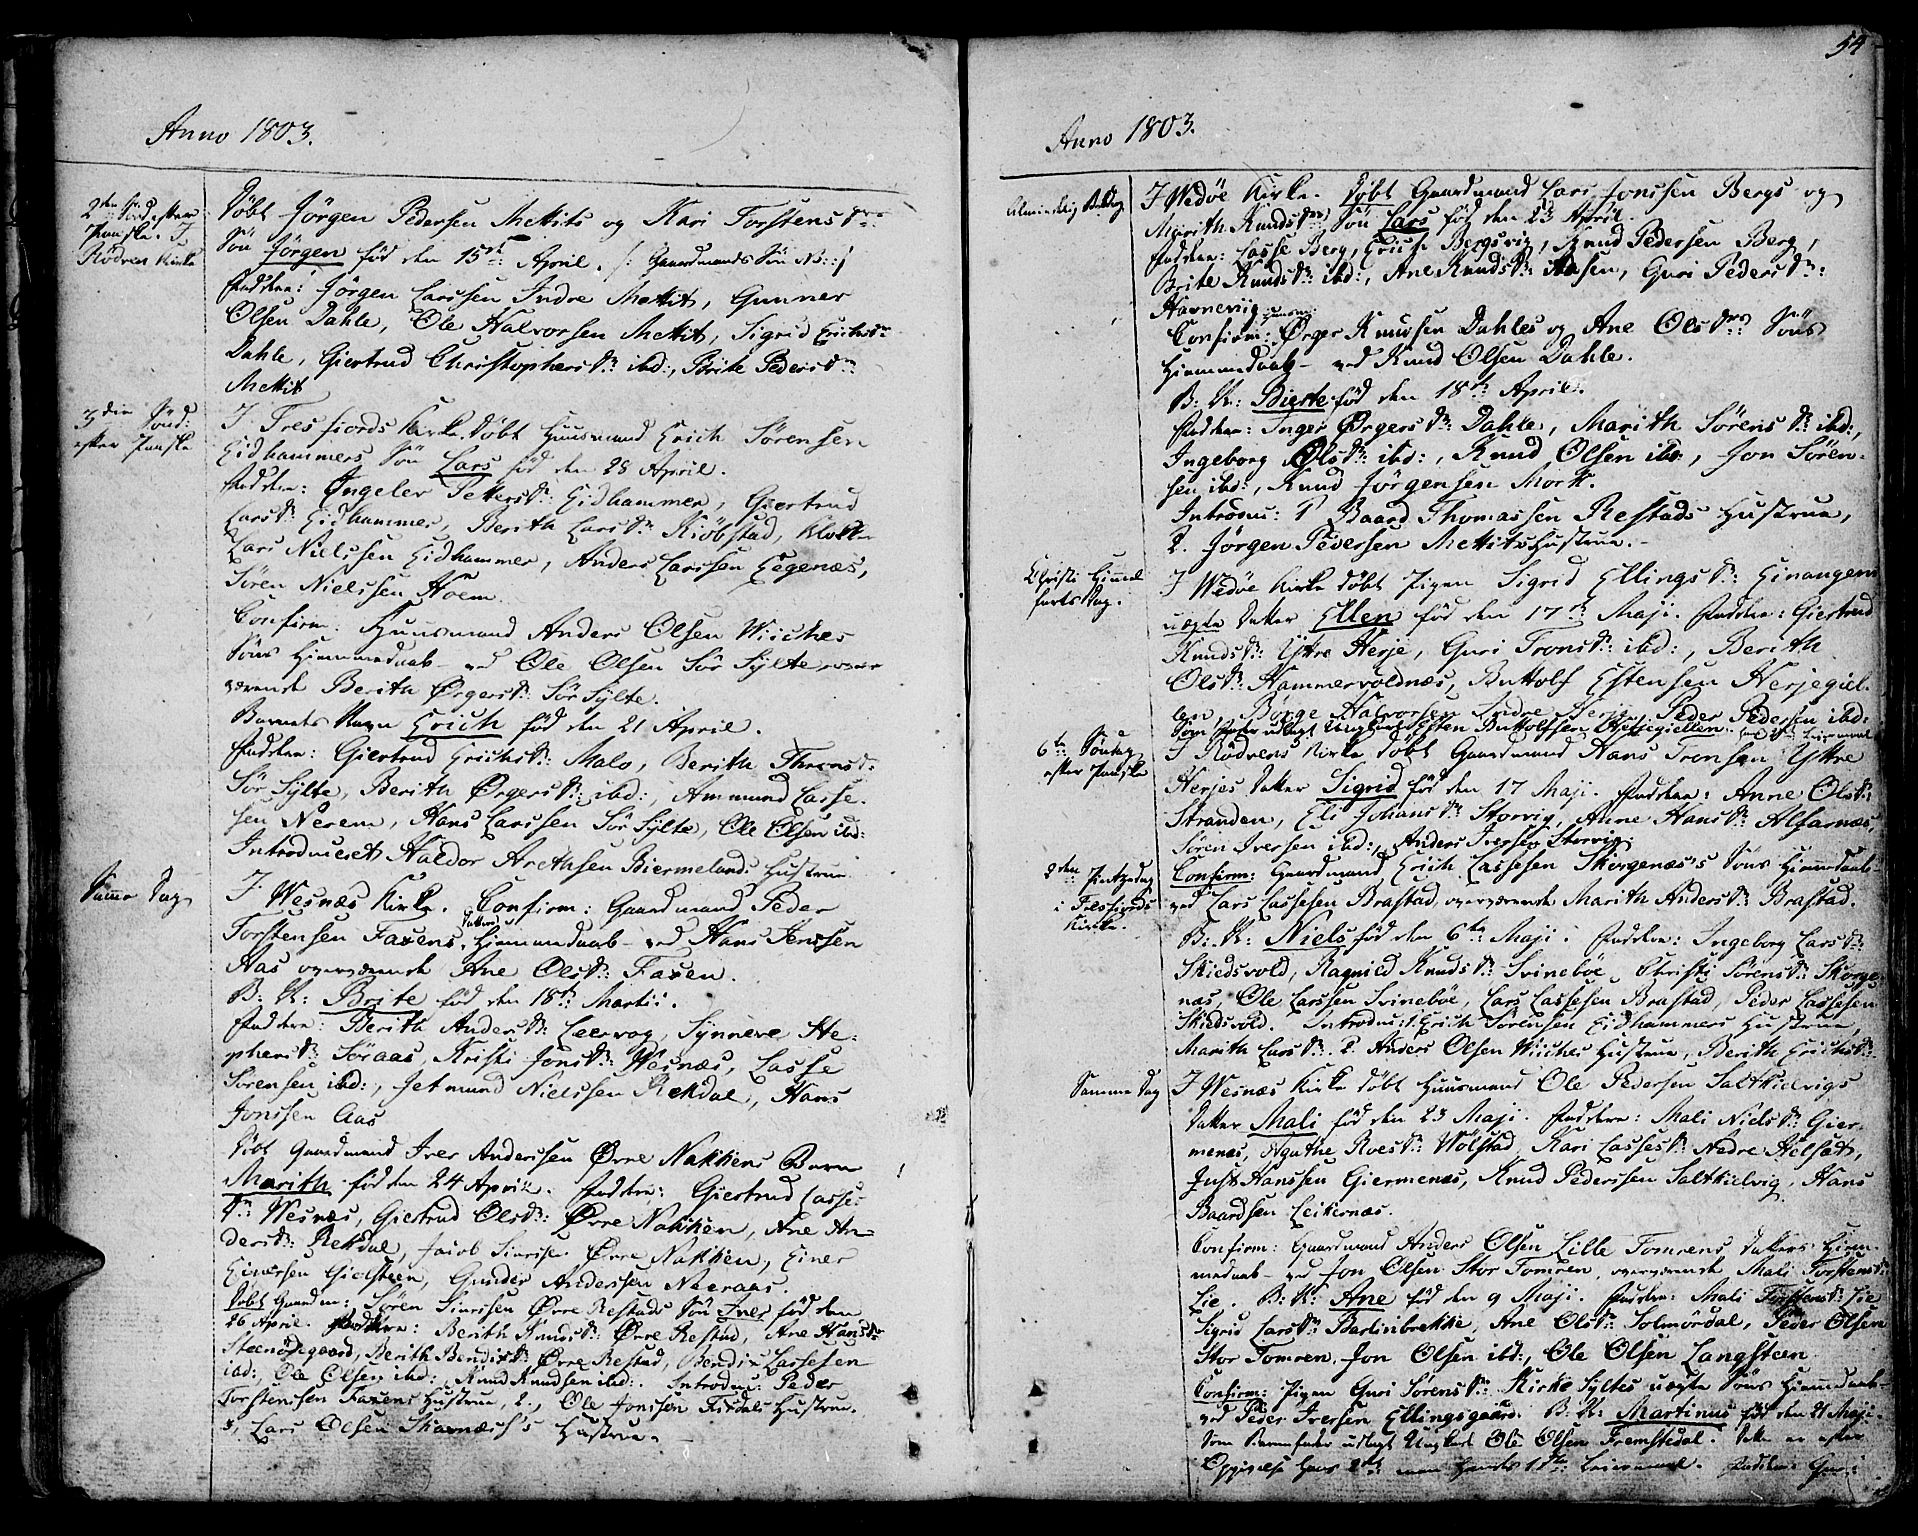 54
Anno 1803.
2den Sönd efter
Paaske. I
Rödven Kirke
Döbt Jörgen Pedersen Mettits og Kari Torstens Dtrs
Sön Jörgen föd den 15de April. /: Gaardmands Sön NB :/
Fadere: Jörgen Larssen Indre Mettit, Gunner
Olsen Dahle, Ole Halvorsen Mettit, Sigrid Erichsdr
Dahle, Giertrud Christophersdr ibd:, Brite Pedersdr
Mettit
3die Sönd:
efter Paaske
I Tresfiords Kirke döbt Huusmand Erich Sörensen
Eidhammers Sön Lars föd den 28 April.
Faddere: Öngeler Pettersdr: Eidhammer, Giertrud
Larsdr: Eidhammer, Berith Larsdr: Kiöbstad, Klokker
Lars Nielssen Eidhammer, Anders Larssen Eegenæs,
Sören Nielssen Hoem.
Confirm: Huusmand Anders Olsen Wiiches
Söns Hiemmedaab ved Ole Olsen Sör Sylte, over
værende Berith Ørgersdr: Sör Sylte.
Barnets Navn Erich föd den 21 April.
Faddere: Giertrud Erichsdr: Malo, Berith Thronsdr:
Sör Sylte, Berith Ørgersdr: ibd:, Ammund Lasse-
sen Nerem, Hans Larssen Sör Sylte, Ole Olsen ibd:
Introduceret Haldor Arethsen Biermelands Hustrue
Samme Dag
I Wesnæs Kirke. Confirm: Gaardmand Peder
Torstensen Faxens Datters Hiemmedaab ved Hans Jenssen
Aas overværende Ane Olsdr: Faxen.
B: N: Brite föd den 18de Martii.
Faddere: Berith Andersdr: Leervog, Synneve Ste-
phensdr: Söraas, Kristi Jonsdr: Wesnæs, Lasse
Sörensen ibd:, Jetmund Nielssen Rekdal, Hans
Jonssen Aas
Döbt Gaardmand Iver Anderssen Øvre Nakkens Barn
Marith föd den 24 April. Faddere: Giertrud Lasse-
dr: Wesnæs, Giertrud Olsdr: Øvre Nakken, Ane An-
dersdr: Rekdal, Jacob Øvre Nakken, Einer
Einersen Gielsteen, Gunder Anderssen Næraas.
Döbt Gaardm: Sören Øvre Restads Sön Iver föd den
26 April. Faddere: Berith Knudsdr: Øvre Restad, Ane Hansdr
Steenödegaard, Berith Bendixdr: Øvre Restad, Bendix Lassesen
ibd:, Ole Olsen ibd:, Knud Knudsen ibd:. Introdus: Peder
Torstenssen Faxens Hustrue, 2., Ole Jonssen Hustrue.
3, Lars Olsen Hustrue.
Anno 1803.
Almindelig Bededag
I Wedöe Kirke. Döbt Gaardmand Lars Jonssen Bergs og
Marith Knudsdrs Sön Lars föd den 23 April.
Faddere: Lasse Berg, Bergsvig, Knud Pedersen Berg,
Brite Knudsdr: ibd:, Ane Knudsdr: Aasen, Guri Pedersdr:
Havneviig
Confirm: Ørger Knudsen Dahles og Ane Olsdrs Söns
Hiemmedaab ved Knud Olsen Dahle.
B: N: Bierte föd den 18de April.
Faddere: Inger Ørgersdr: Dahle, Marith Sörensdr: ibd:,
Ingeborg Olsdr: ibd:, Knud Olsen ibd, Jon Sören-
sen ibd:, Knud Jorgensen Mork.
Introdus: 1 Baard Thomassen Restads Hustrue,
2. Jörgen Pedersen Mettits Hustrue.
Christi Himmel
farts Dag.
I Wedöe Kirke döbt Pigen Sigrid Ellingsdr: Einangens
uægte Datter Ellen föd den 17de Maji. Faddere: Giertrud
Knudsdr: Yttre Herje, Guri Tronsdr: ibd:, Berith
Olsdr: Hammervoldnæs, Buttolf Estensen Herjegiel-
len, Börge Halvorsen Indre Herje, Peder Pedersen ibd:
Som Fader udlagt Ungkarl Esten Buttolfsen Herjegiellen.
6te Söndag
efter Paaske
I Rödvens Kirke döbt Gaardmand Hans Tronsen Yttre
Herjes Datter Sigrid föd den 17 Maji. Faddere: Anne Olsdr:
Stranden, Eli Johansdr: Storvig, Anne Hansdr: Alfarnæs,
Sören Iversen ibd:, Anders Iversen Storvig
2den Pintsedag
i Tresfiords
Kirke.
Confirm: Gaardmand Erich Lassesen Skorgenæs's Söns Hiemmedaab
ved Lars Lassesen Brastad, overværende Marith Andersdr: Brastad.
B: N: Niels föd den 6te Maji. Faddere: Ingeborg Larsdr:
Skiedsvold, Ragnild Knudsdr: Svineböe, Christi Sörensdr: Skorge-
næs, Ole Larssen Svineböe, Lars Lassesen Brastad, Peder Lassesen
Skiedsvold. Introdus: 1. Erich Sörensen Eidhammers Hustrue,
Marith Larsdr. 2. Anders Olsen Wiiches Hustrue, Berith Erichsdr:
Samme Dag
I Wesnæs Kirke döbt Huusmand Ole Pedersen Saltkielvigs
Datter Mali föd den 23 Maji. Faddere: Mali Nielsdr: Gier-
menæs, Agathe Roesdr: Wölstad, Kari Lassesdr: Nedre Helset,
Just Hanssen Giermenæs, Knud Pederssen Saltkielvig, Hans
Baardsen Leikernæs.
Confirm: Gaardmand Anders Olsen Lille Tomrens Datters Hiem-
medaab ved Jon Olsen Stor Tomren, overværende Mali Torstensdr:
Lie. B: N: Ane föd den 9 Maji. Faddere: Mali Torstensdr: Lie
Sigrid Larsdr: Barlinbrekke, Ane Olsdr: Solmördal, Peder Olsen
Stor Tomren, Jon Olsen ibd:, Ole Olsen Langsteen
Confirm: Pigen Guri Sörensdr: Kirke Syltes uægte Söns Hiemmedaab
ved Peder Iversen Ellingsgaard. B. N: Martinus föd den 21 Maji.
Som Barnefader udlagt Ungkarl Ole Olsen Fremstedal. Dette er efter
Opgivelse hans 2det men hendes 1ste Leiermaal. Faddere: Guri